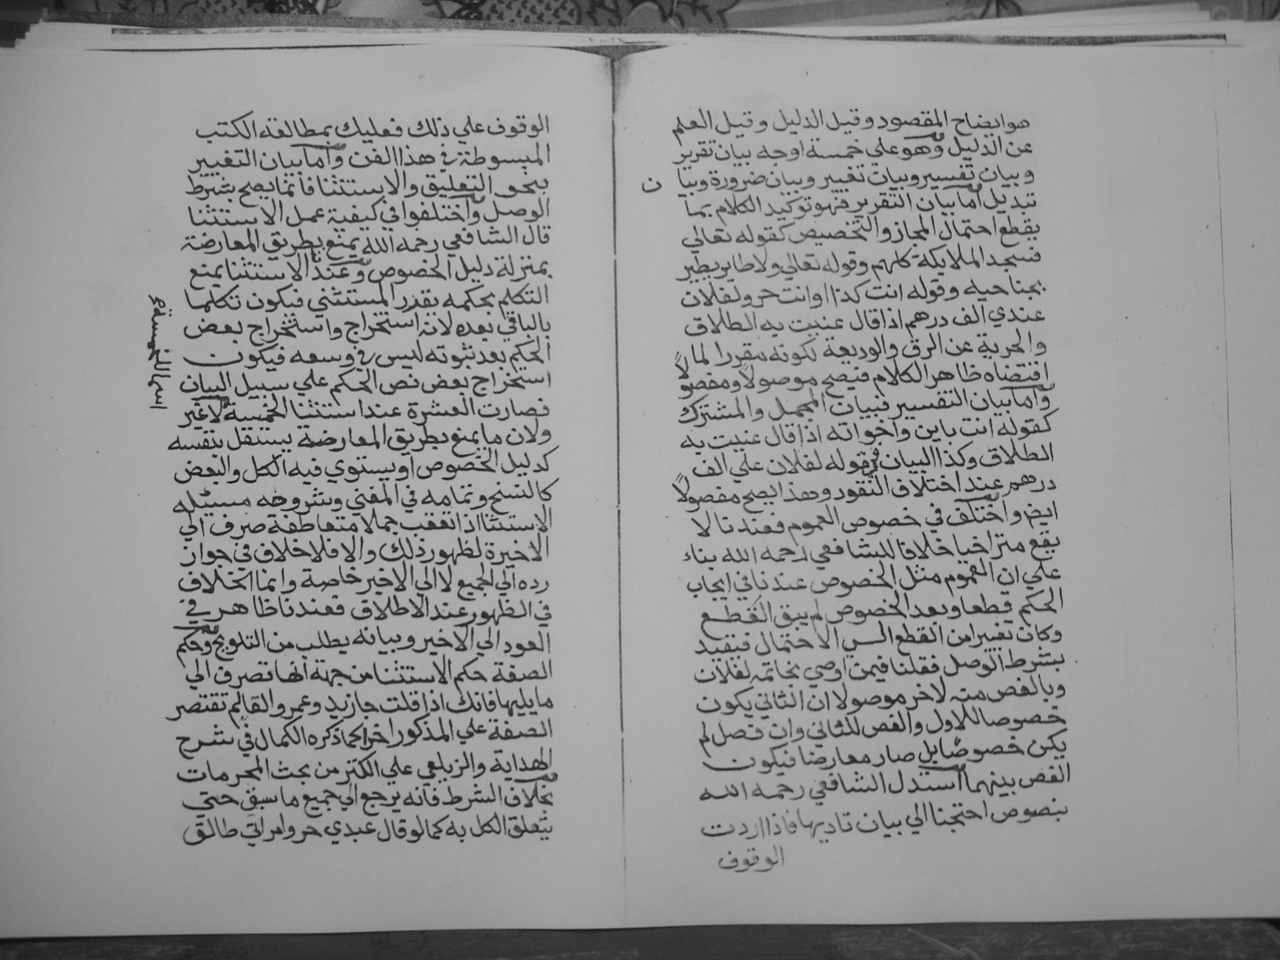 هو ايضاح المقصود وقيل الدليل وقيل العلم
عن الدليل وهو على خمسة اوجه بيان تقرير
وبيان تفسير وبيان تغيير وبيان ضرورة وبيا
ن
تبديل اما بيان التقرير فهو توكيد الكلام بما
يقطع احتمال المجاز والتخصيص كقوله تعالي
فسجد الملايكة كلهم وقوله تعالي ولا طاير يطير
بجناحيه وقوله انت كذا او انت حر ولفلان
عندي الف درهم اذا قال عنيت به الطلاق
والحرية عن الرق والوديعة لكونه مقررا لما
اقتضاه ظاهر الكلام فيصح موصولا ومفصولاً
واما بيان التفسير فبيان المجمل والمشترك
كقوله انت باين واخواته اذا قال عنيت به
الطلاق وكذا البيان في قوله لفلان علي الف
درهم عند اختلاف النقود وهذا يصح مفصولاً
ايضا واختلف في خصوص العموم فعندنا لا
يقع متراخيا خلافا للشافعي رحمه الله بناء
علي ان العموم مثل الخصوص عندنا في ايجاب
الحكم قطعا وبعد الخصوص لم يبق القطع
وكان تغييرا من القطع الي الاحتمال فيقيد
بشرط الوصل فقلنا فيمن اوصي بخاتمه لفلان
وبالفص منه لاخر موصولا ان الثاني يكون
خصوصا للاول والفص للثاني وان فصل لم
يكن خصوصا بل صار معارضا فيكون
الفص بينهما استدل الشافعي رحمه الله
بنصوص احتجنا الي بيان تاديها فاذا اردت
الوقوف
الوقوف علي ذلك فعليك بمطالعة الكتب
المبسوطة في هذا الفن واما بيان التغيير
بنحو التعليق والاستثنا فانما يصح بشرط
الوصل واختلفوا في كيفية عمل الاستثنا
قال الشافعي رحمه الله يمنع بطريق المعارضة
بمنزلة دليل الخصوص وعندنا الاستثنا يمنع
التكلم بحكمه بقدر المستثني فيكون تكلما
بالباقي بعده لانه استخراج واستخراج بعض
الحكم بعد ثبوته ليس في وسعه فيكون
استخراج بعض نص الحكم علي سبيل البيان
فصارت العشرة عند استثنا الخمسة لا غير
اسما للخمسة
ولان ما يمنع بطريق المعارضة يستقل بنفسه
كدليل الخصوص او يستوي فيه الكل والبعض
كالنسخ وتمامه في المغني وشروحه مسئله
الاستثنا اذا تعقب جملا متعاطفة صرف الي
الاخيرة لظهور ذلك والا فلا خلاف في جواز
رده الي الجميع لا الي الاخير خاصة وانما الخلاف
في الظهور عند الاطلاق فعندنا ظاهر في
العود الي الاخير وبيانه يطلب من التلويح وحكم
الصفة حكم الاستثنا من جهة انها تصرف الي
ما يليها فانك اذا قلت جا زيد وعمرو العالم تقتصر
الصفة علي المذكور اخرا كما ذكره الكمال في شرح
الهداية والزيلعي علي الكنز من بحث المحرمات
بخلاف الشرط فانه يرجع الي جميع ما سبق حتي
يتعلق الكل به كما لو قال عبدي حر وامراتي طالق